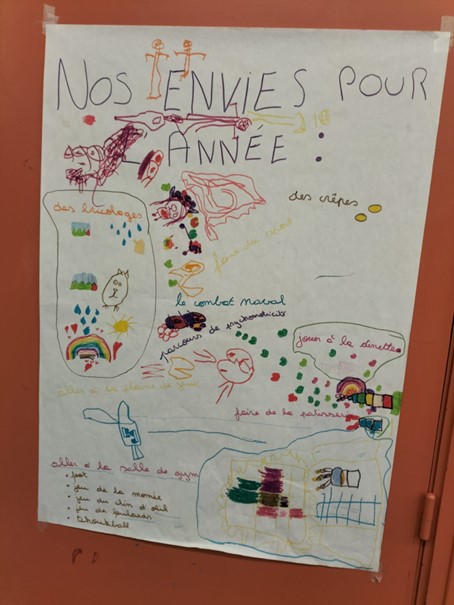 NOS ENVIES POUR
L'ANNÉE :
des bricolages
des crêpes
faire du
le combat naval
parcours de psychomotricité
jouer à la dinette
aller à la plaine de jeu
faire de la patisserie
aller à la salle de gym
• foot
• jeu de la momie
• jeu du clin d'œil
• jeu de foulards
• tchoukball